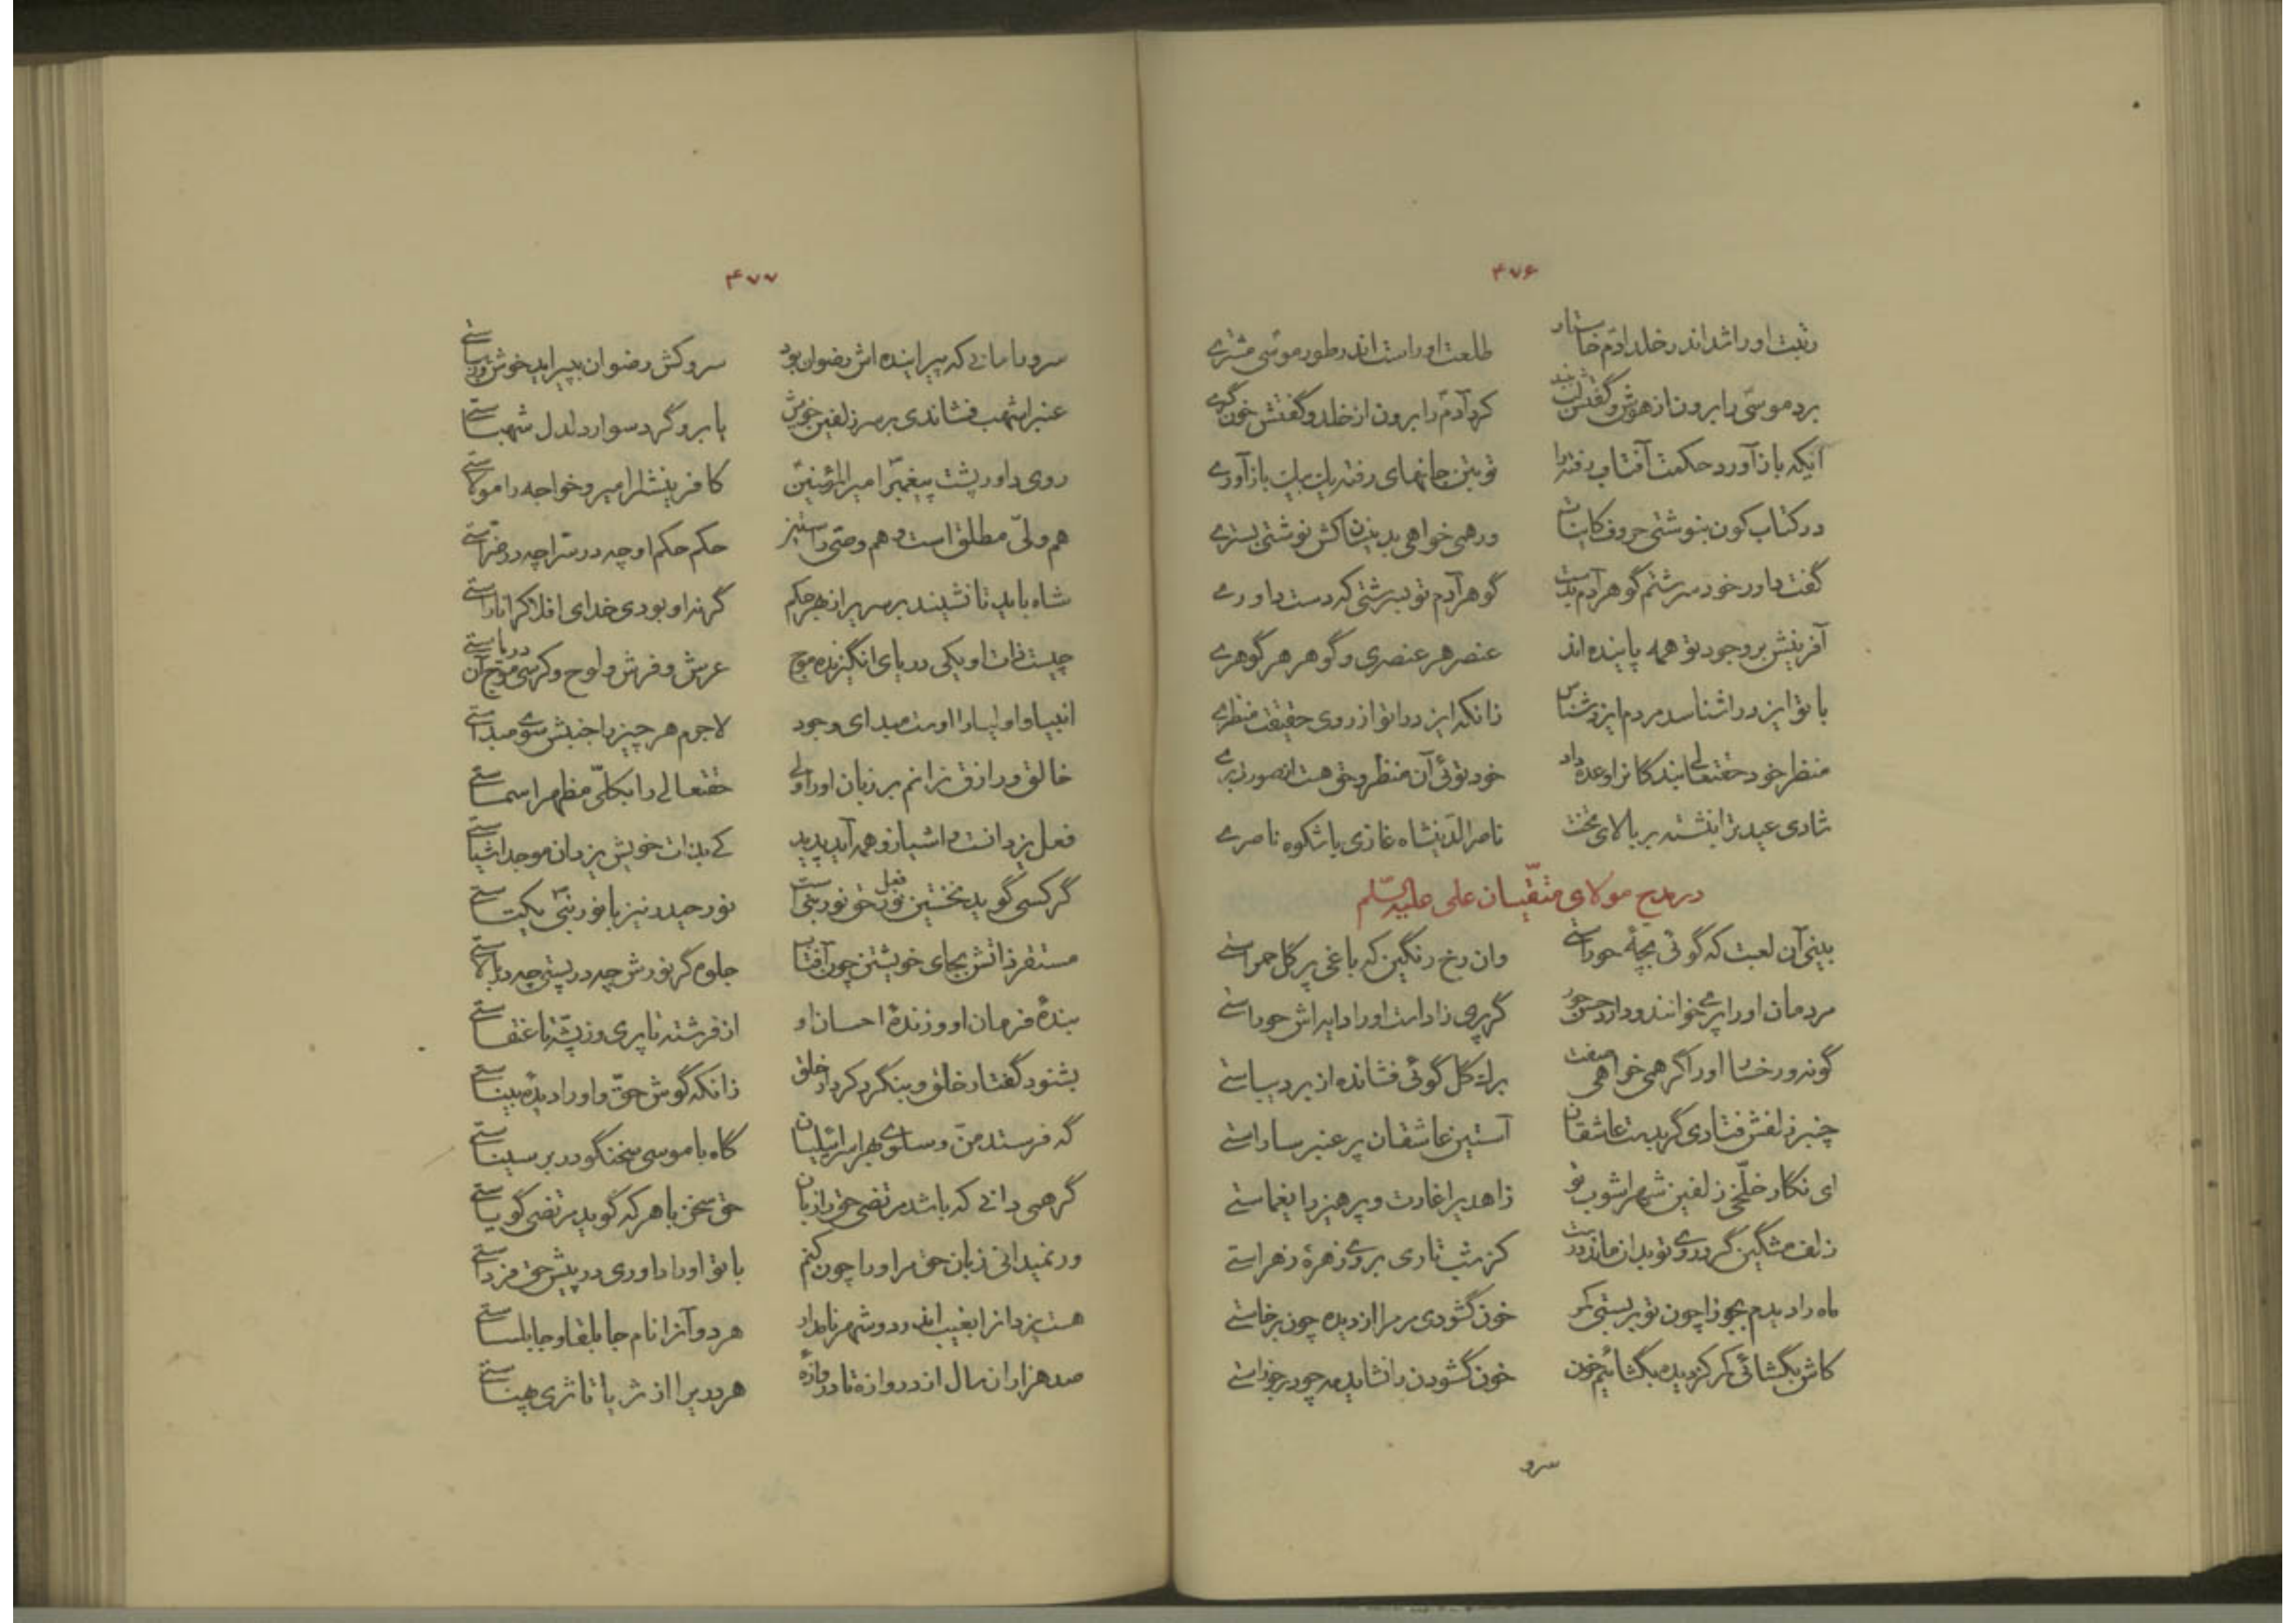 ۴۷۶
رتبت او را شد اندر خلد آدم خاستار    طلعت او راست اندر طور موسی مشتری
برد موسی را برون از هوش و گفتش    کرد آدم را برون از خلد و گفتش خون گری
آنکه باز آورد حکمت آفتاب رفته را    تو بتن جانهای رفته یک بیک باز آوری
در کتاب کون بنوشتی حروف کاینات    ور همی خواهی بدینسان کش نوشتی بستری
گفت داور خود سرشتم گوهر آدم بدست    گوهر آدم تو بسرشتی که دست داوری
آفرینش بر وجود تو همه پاینده اند    عنصر هر عنصری و گوهر هر گوهری
با تو ایزد را شناسد مردم ایزد شناس    زانکه ایزد را تو از روی حقیقت منظری
منظر خود حقتعالی بندگانرا وعده داد    خود توئی آن منظر و حق هست از صورت بری
شادی عید ترا بنشسته بر بالای تخت    ناصر الدینشاه غازی با شکوه ناصری
در مدح مولای متقیان علی علیه السلم
بینی آن لعبت که گوئی بچهٔ حوراستی    وان رخ رنگین که باغی پر گل حمراستی
مردمان او را پری خوانند و دارد حسن حور    گر پری زاد است او را دایه اش حوراستی
گونه و رخسار او را گر همی خواهی صفت    برک گل گوئی فشانده از بر دیباستی
چنبر زلفش فتادی گر بدست عاشقان    آستین عاشقان پر عنبر ساراستی
ای نگار خلخی زلفین شهر اشوب تو    زاهد یرا غارت و پرهیز را یغماستی
زلف مشگین گرد روی تو بدان ماند درست    کز شب تاری بروی زهرهٔ زهراستی
ماه را دیدم بجوزا چون تو بر بستی کمر    خون گشودی مر مرا از دیده چون برخاستی
کاش بگشائی کمر کز دیده بگشائیم خون    خون گشودن را نشاید مه چو در جوزاستی
سرو
۴۷۷
سرو را مانی که پیراینده اش رضوان بود    سرو کش رضوان بپیراید خوش و زیباستی
عنبر اشهب فشاندی بر سر زلفین خویش    یا برو گرد سوار دلدل شهباستی
روی داور پشت پیغمبر امیر المؤمنین    کافرینشرا امیر و خواجه را مولاستی
هم ولی مطلق است و هم وصی راستین    حکم حکم او چه در سرا چه در ضراستی
شاه باید تا نشیند بر سریر از بهر حکم    گر نه او بودی خدای افلاک را ناراستی
چیست ذات او یکی دریای انگیزنده موج    عرش و فرش و لوح و کرسی موج آن دریاستی
انبیا و اولیا را اوست مبدای وجود    لاجرم هر چیز را جنبش سوی مبداستی
خالق و رازق نرانم بر زبان او را ولی    حقتعالی را بکلی مظهر اسماستی
فعل یزدانست و اشیا زو همه آید پدید    کی بذات خویش یزدان موجد اشیاستی
گر کسی گوید نخستین فعل حق نور نبی است    نور حیدر نیز با نور نبی یکتاستی
مستقر ذاتش بجای خویشتن چون آفتاب    جلوه گر نورش چه در پستی چه در بالاستی
بندهٔ فرمان او و زندهٔ احسان او    از فرشته تا پری وز پشه تا عنقاستی
بشنود گفتار خلق و بنگرد کردار خلق    زانکه گوش حق و او را دیدهٔ بیناستی
گه فرستد من و سلوی بهر اسرائیلیان    گاه با موسی سخنگو در بر سیناستی
گر همی دانی که باشد مرتضی حق را زبان    حق سخن با هر که گوید مرتضی گویاستی
ور نمیدانی زبان حق مر او را چون کنم    با تو او را داوری در پیش حق فرداستی
هست یزدانرا بغیب اندر دو شهر نامدار    هر دو آنرا نام جابلقا و جابلساستی
صد هزاران سال از دروازه تا دروازهٔ    هر دریرا از ثریا تا ثری پهناستی